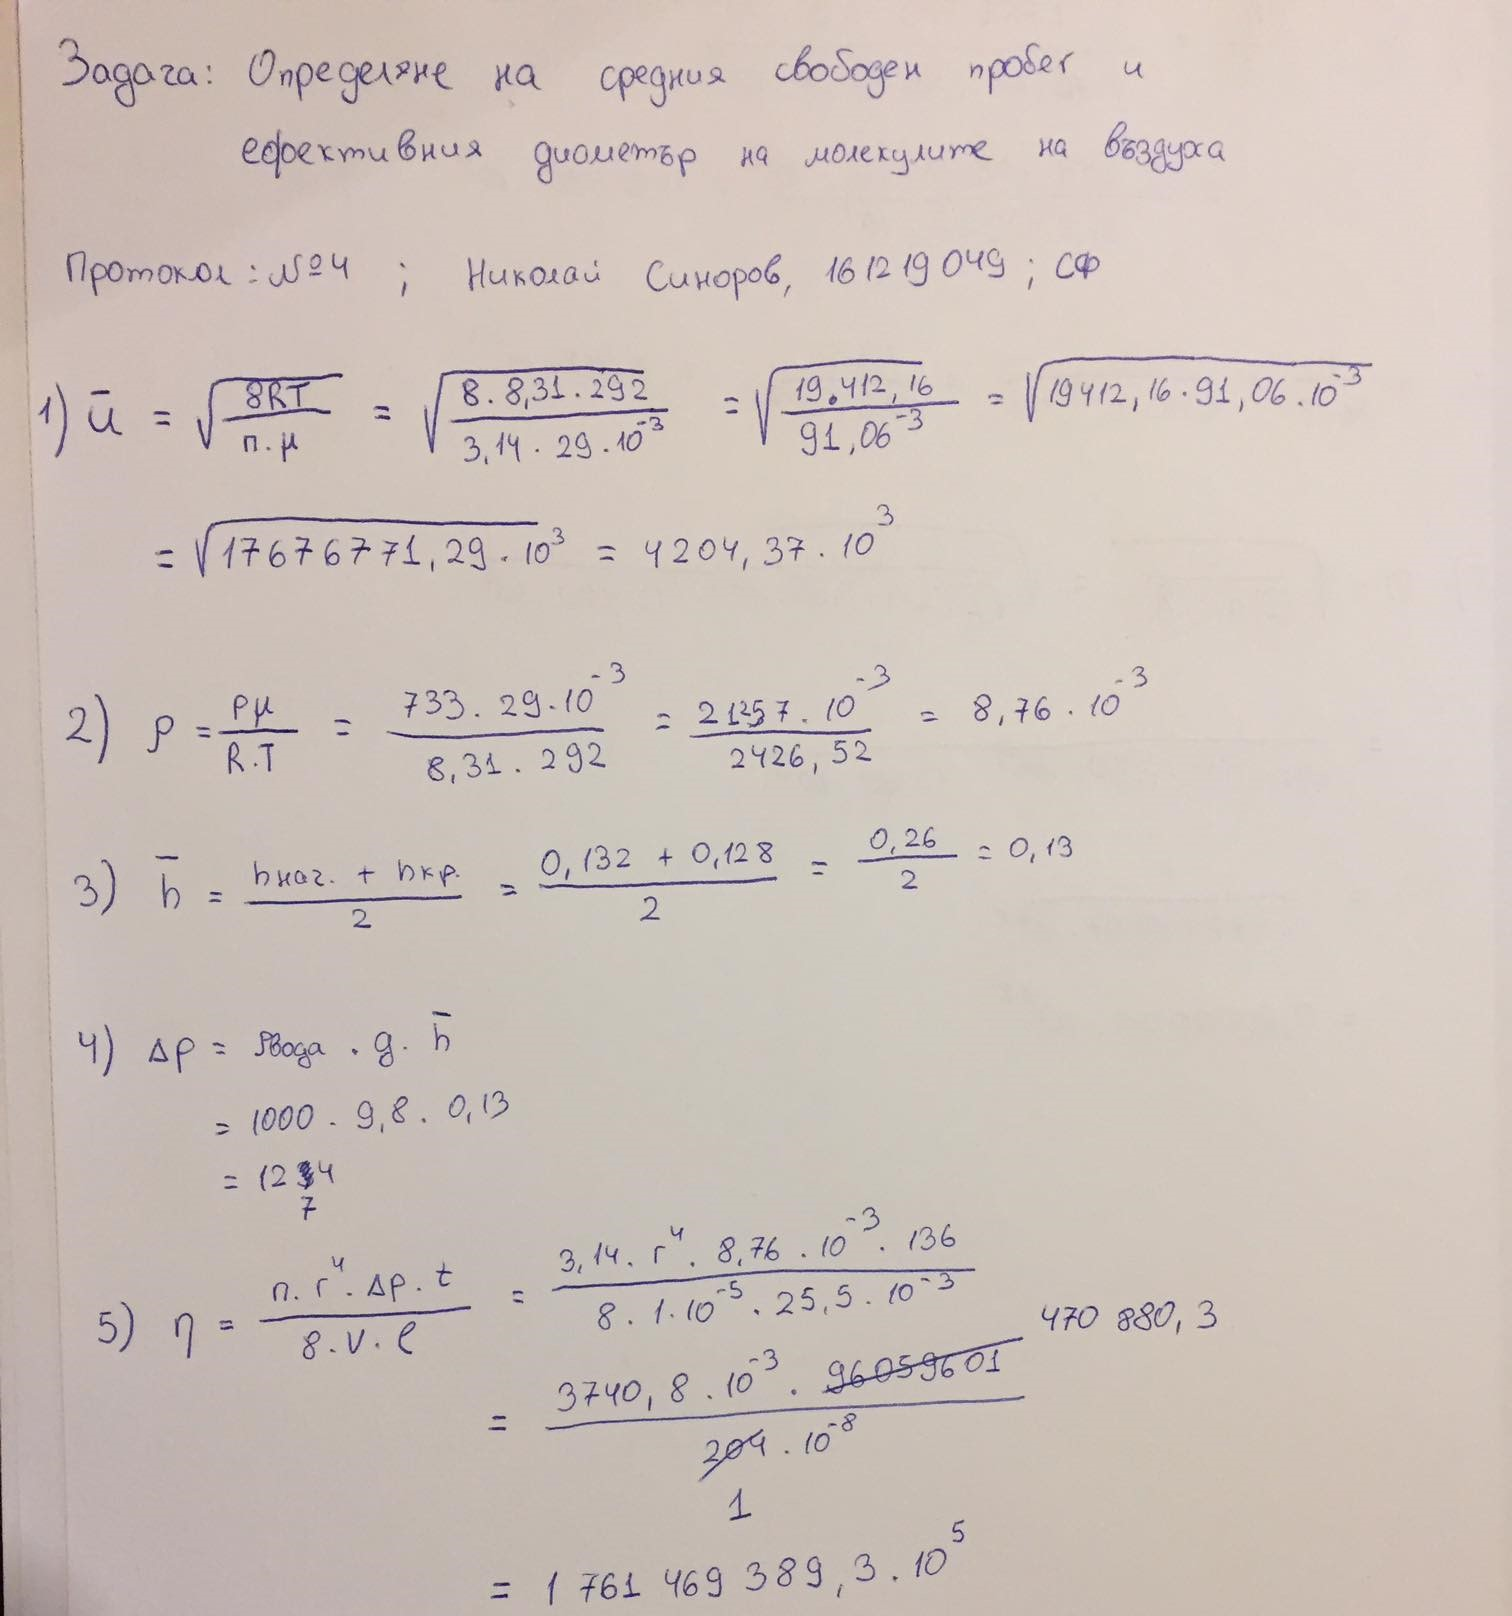 Задача: Определяне на средния свободен пробег и
ефективния диометър на молекулите на въздуха
Протокол: №4 ; Николай Синоров, 161219049; СФ
1) ū = √(8RT / п.μ) = √(8.8,31.292 / 3,14.29.10⁻³) = √(19.412,16 / 91,06⁻³) = √(19412,16.91,06.10⁻³)
= √17676771,29.10³ = 4204,37.10³
2) ρ = pμ / R.T = 733.29.10⁻³ / 8,31.292 = 21257.10⁻³ / 2426,52 = 8,76.10⁻³
3) h̄ = hнач. + hкр. / 2 = 0,132 + 0,128 / 2 = 0,26 / 2 = 0,13
4) Δp = ρвода . g. h̄
= 1000. 9,8. 0,13
= 1274
5) η = п.r⁴.Δp.t / 8.V.l = 3,14.r⁴.8,76.10⁻³.136 / 8.1.10⁻⁵.25,5.10⁻³
= 3740,8.10⁻³.96059601 470 880,3 / 204.10⁻⁸
1
= 1 761 469 389,3.10⁵